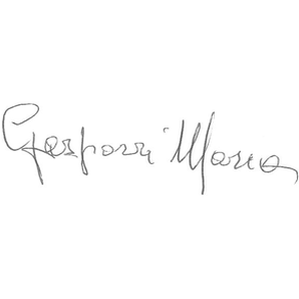 Gasparri Maria